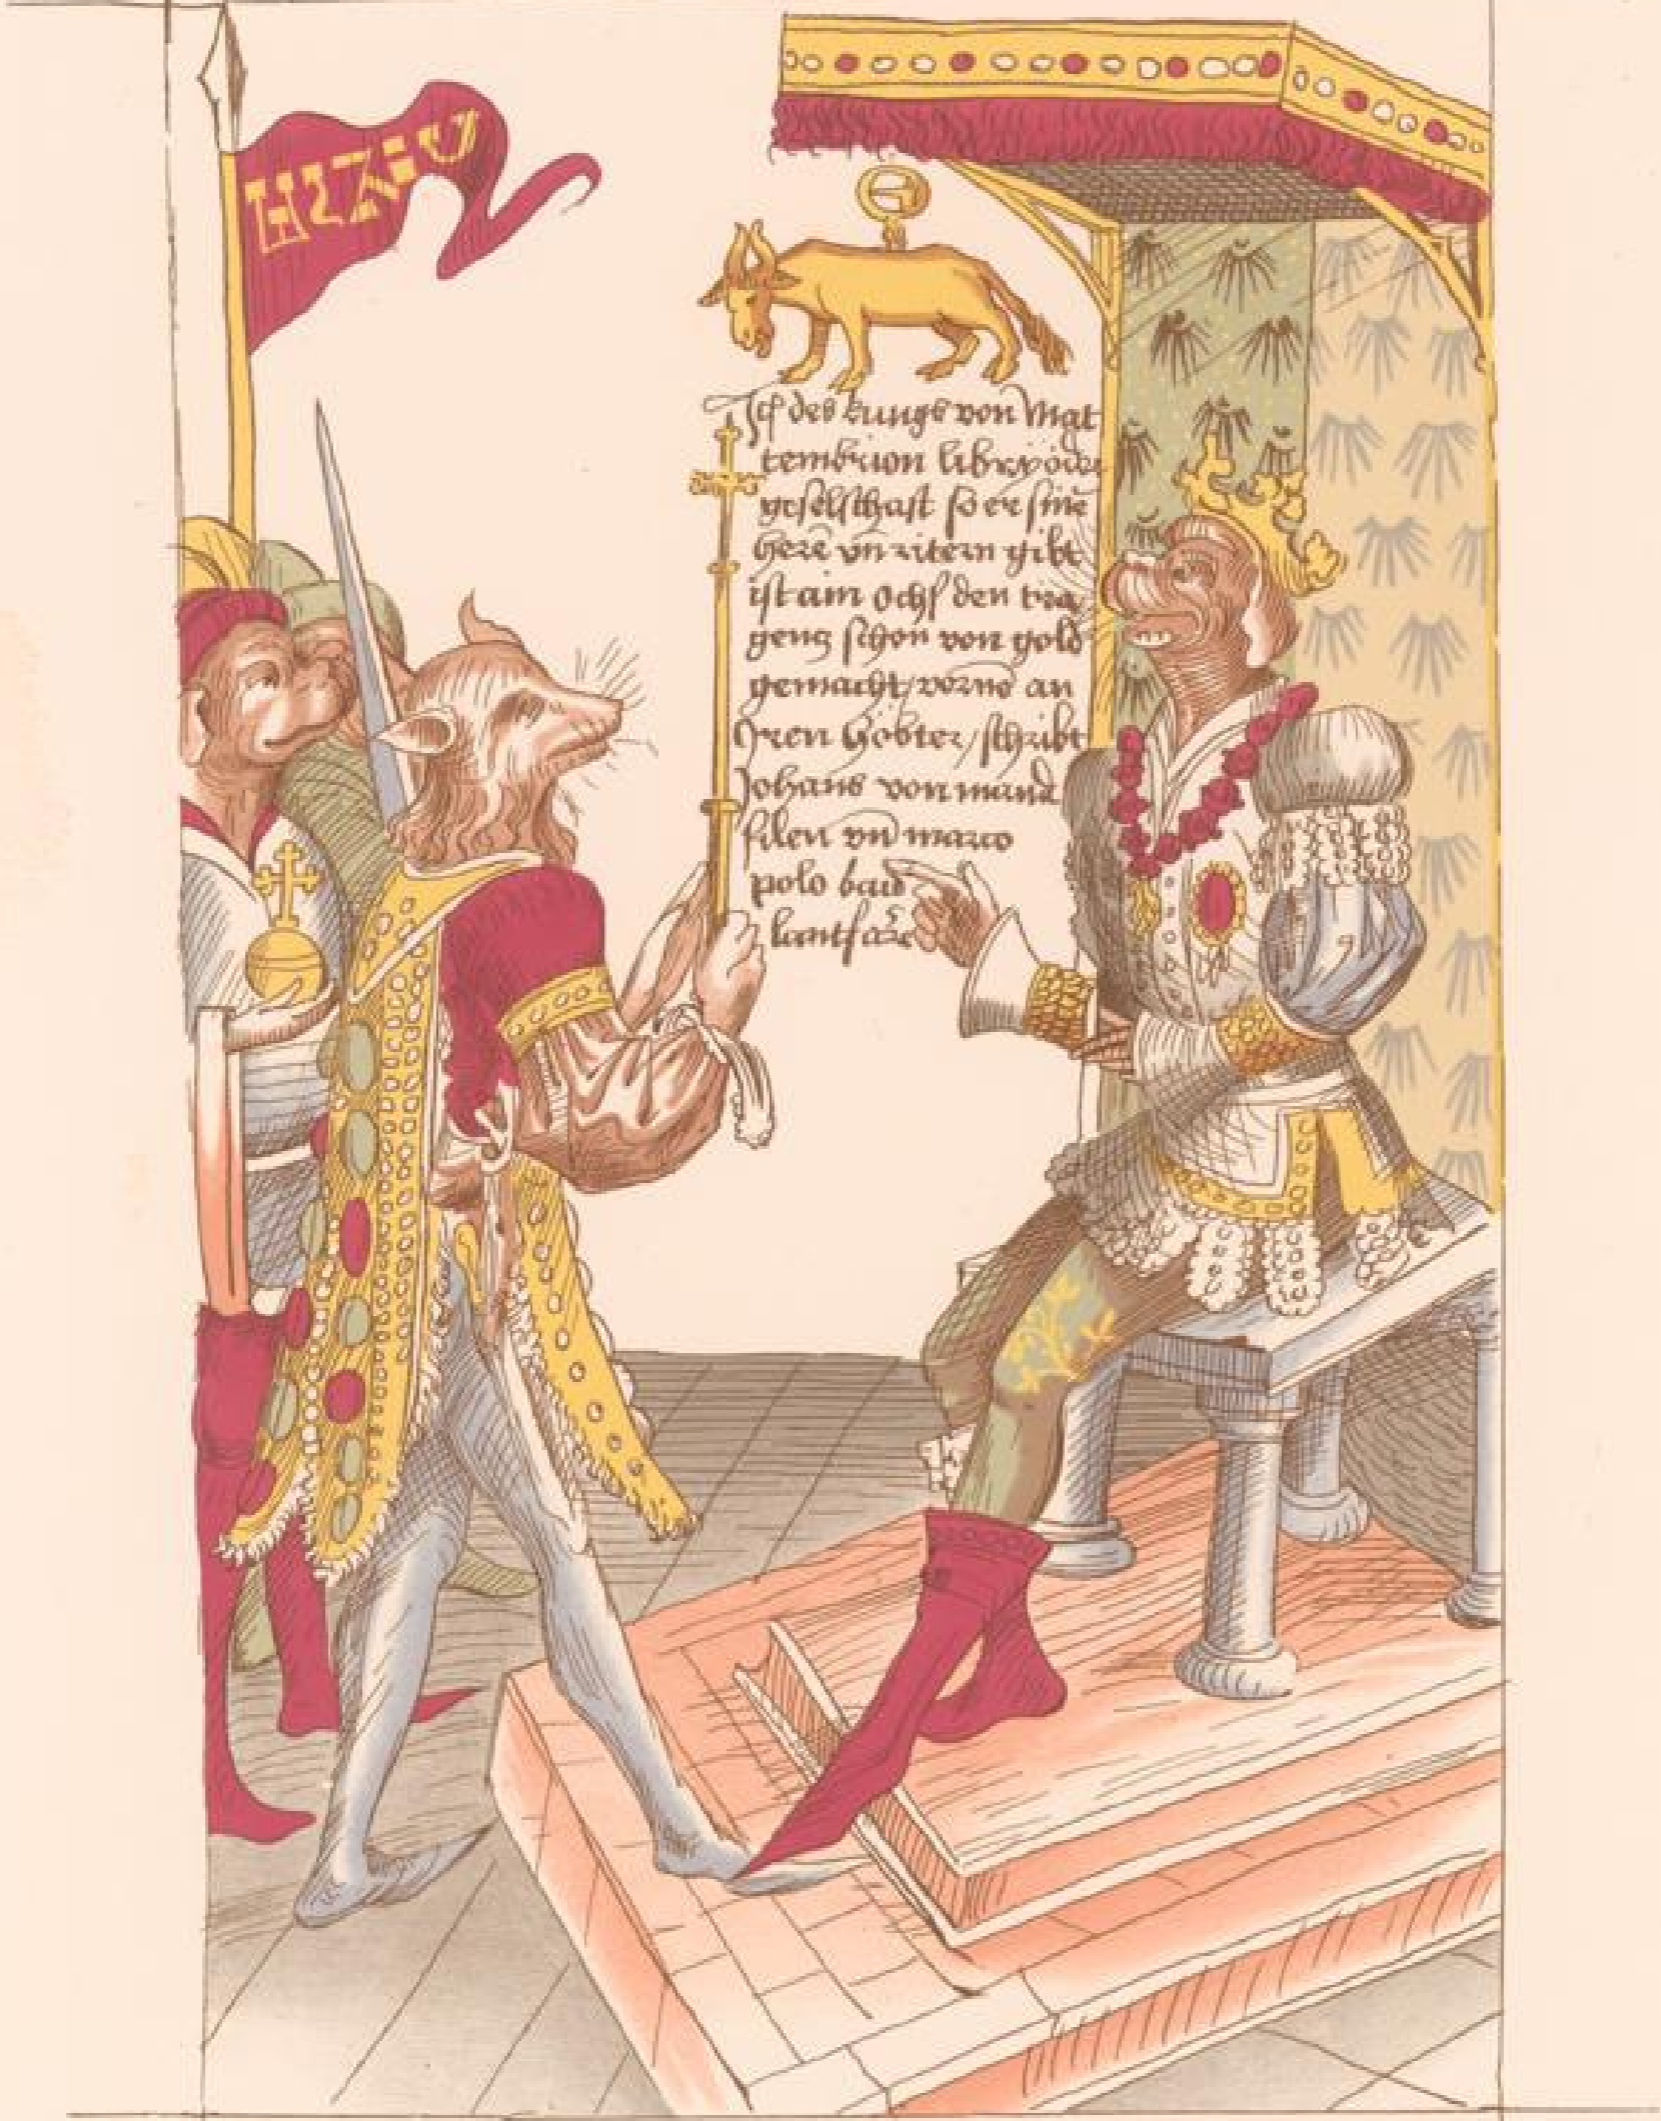 des kungs von Mat
tembrion
geselschaft so er sine
here vn ritern gibt
ist ain ochs den tra
geng schon von gold
gemacht/vorne an
Iren /schribt
Johans von mand
filen vnd marco
polo baid
lantfarer